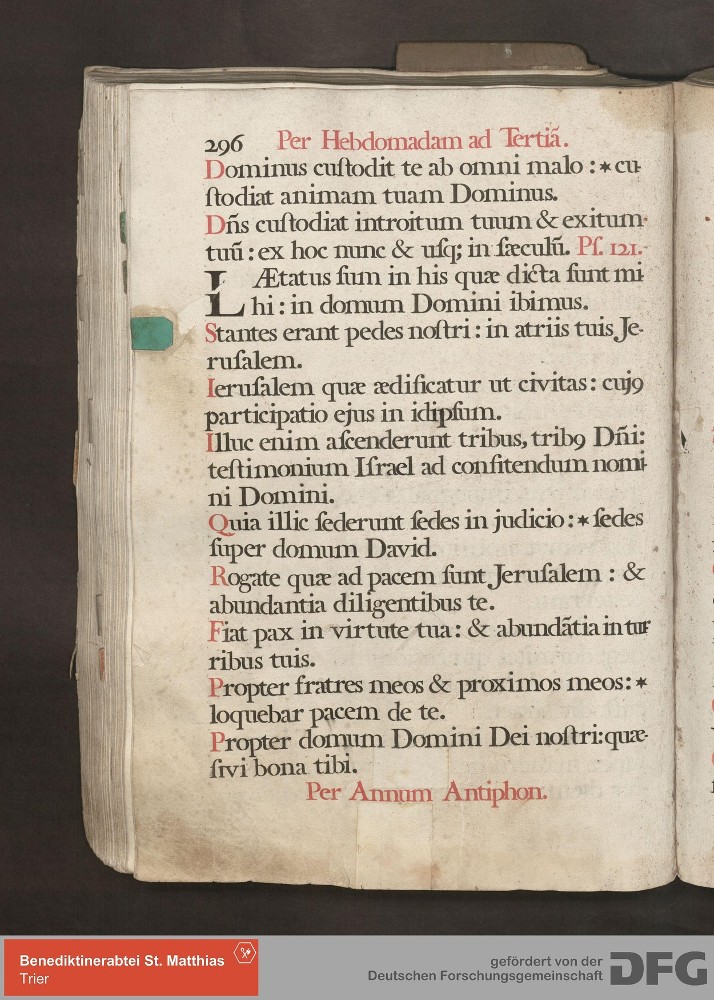 296 Per Hebdomadam ad Tertiã.
Dominus cuſtodit te ab omni malo : * cu-
ſtodiat animam tuam Dominus.
Dñs cuſtodiat introitum tuum & exitum
tuũ : ex hoc nunc & uſq; in ſæculũ. Pſ. 121.
LÆtatus ſum in his quæ dicta ſunt mi-
hi : in domum Domini ibimus.
Stantes erant pedes noſtri : in atriis tuis Je-
ruſalem.
Ieruſalem quæ ædificatur ut civitas : cujꝰ
participatio ejus in idipſum.
Illuc enim aſcenderunt tribus, tribꝰ Dñi:
teſtimonium Iſrael ad confitendum nomi-
ni Domini.
Quia illic ſederunt ſedes in judicio : * ſedes
ſuper domum David.
Rogate quæ ad pacem ſunt Jeruſalem : &
abundantia diligentibus te.
Fiat pax in virtute tua : & abundãtia in tur-
ribus tuis.
Propter fratres meos & proximos meos : *
loquebar pacem de te.
Propter domum Domini Dei noſtri: quæ-
ſivi bona tibi.
Per Annum Antiphon.
Benediktinerabtei St. Matthias
Trier
gefördert von der
Deutschen Forschungsgemeinschaft DFG